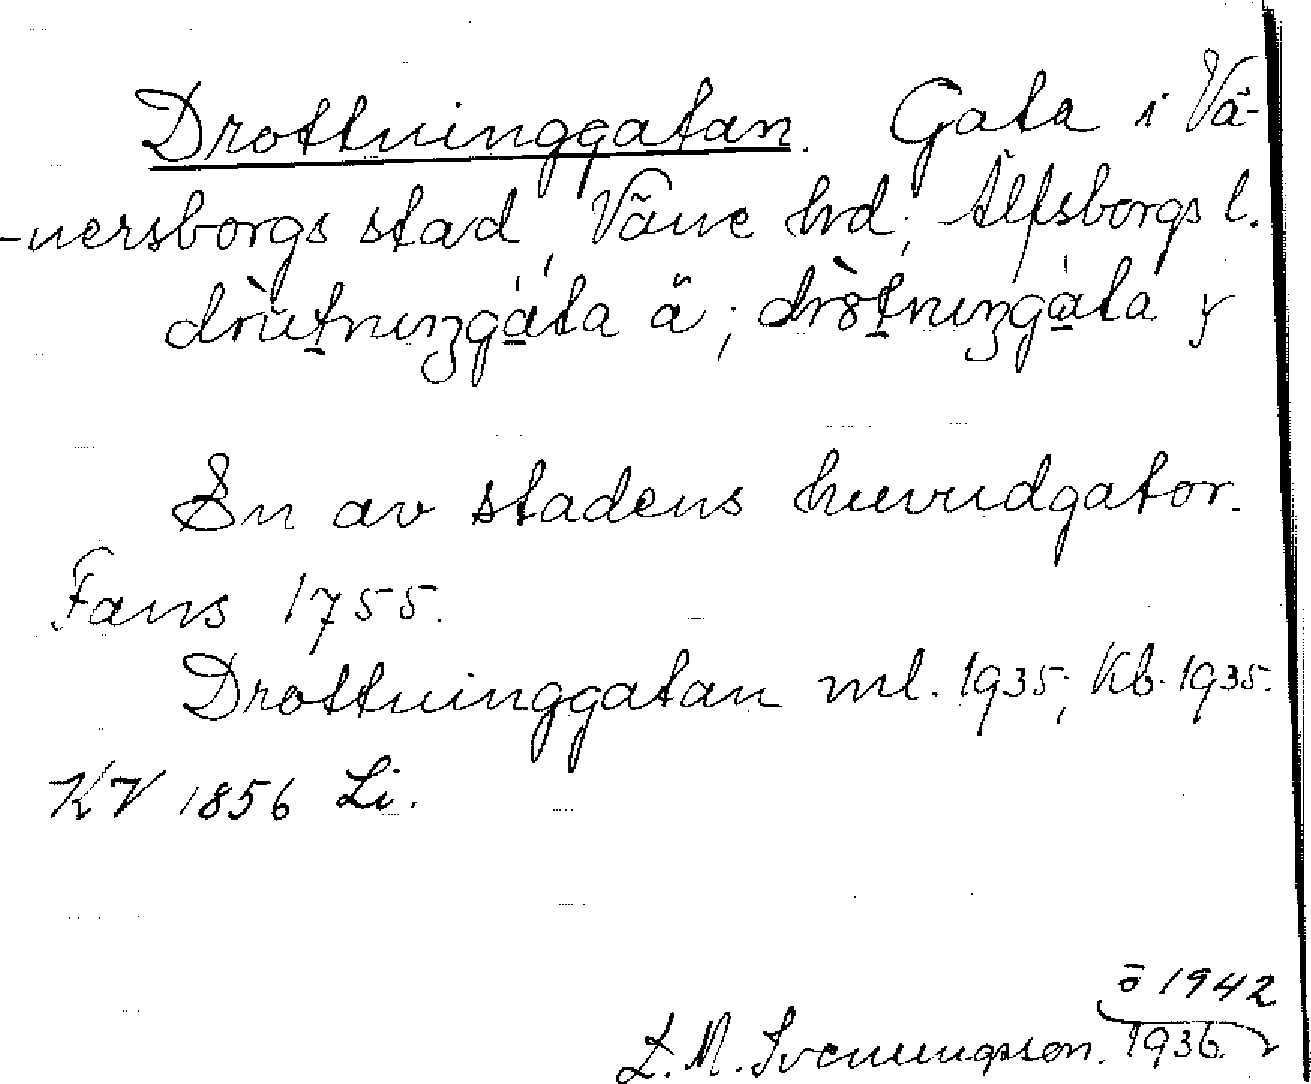 Drottninggatan. Gata i Vä-
-nersborgs stad, Väne hrd, Älfsborgs l.
drùtnuŋgáta ä; dròtnuŋgáta y
En av stadens huvudgator.
Fans 1755.
Drottninggatan ml. 1935; Kb. 1935.
KV 1856 Li.
ō 1942
L. M. Svenungsson. 1936.